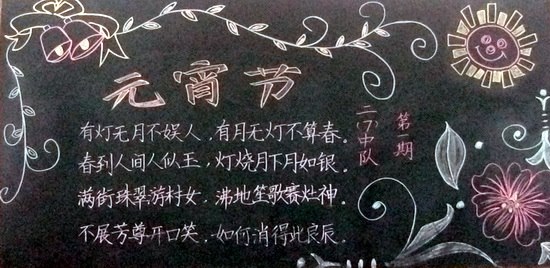 元宵节
有灯无月不娱人，有月无灯不算春。
春到人间人似玉，灯烧月下月如银。
满街珠翠游村女，沸地笙歌赛灶神。
不展芳尊开口笑，如何消得此良辰。
第一期
二(7)中队